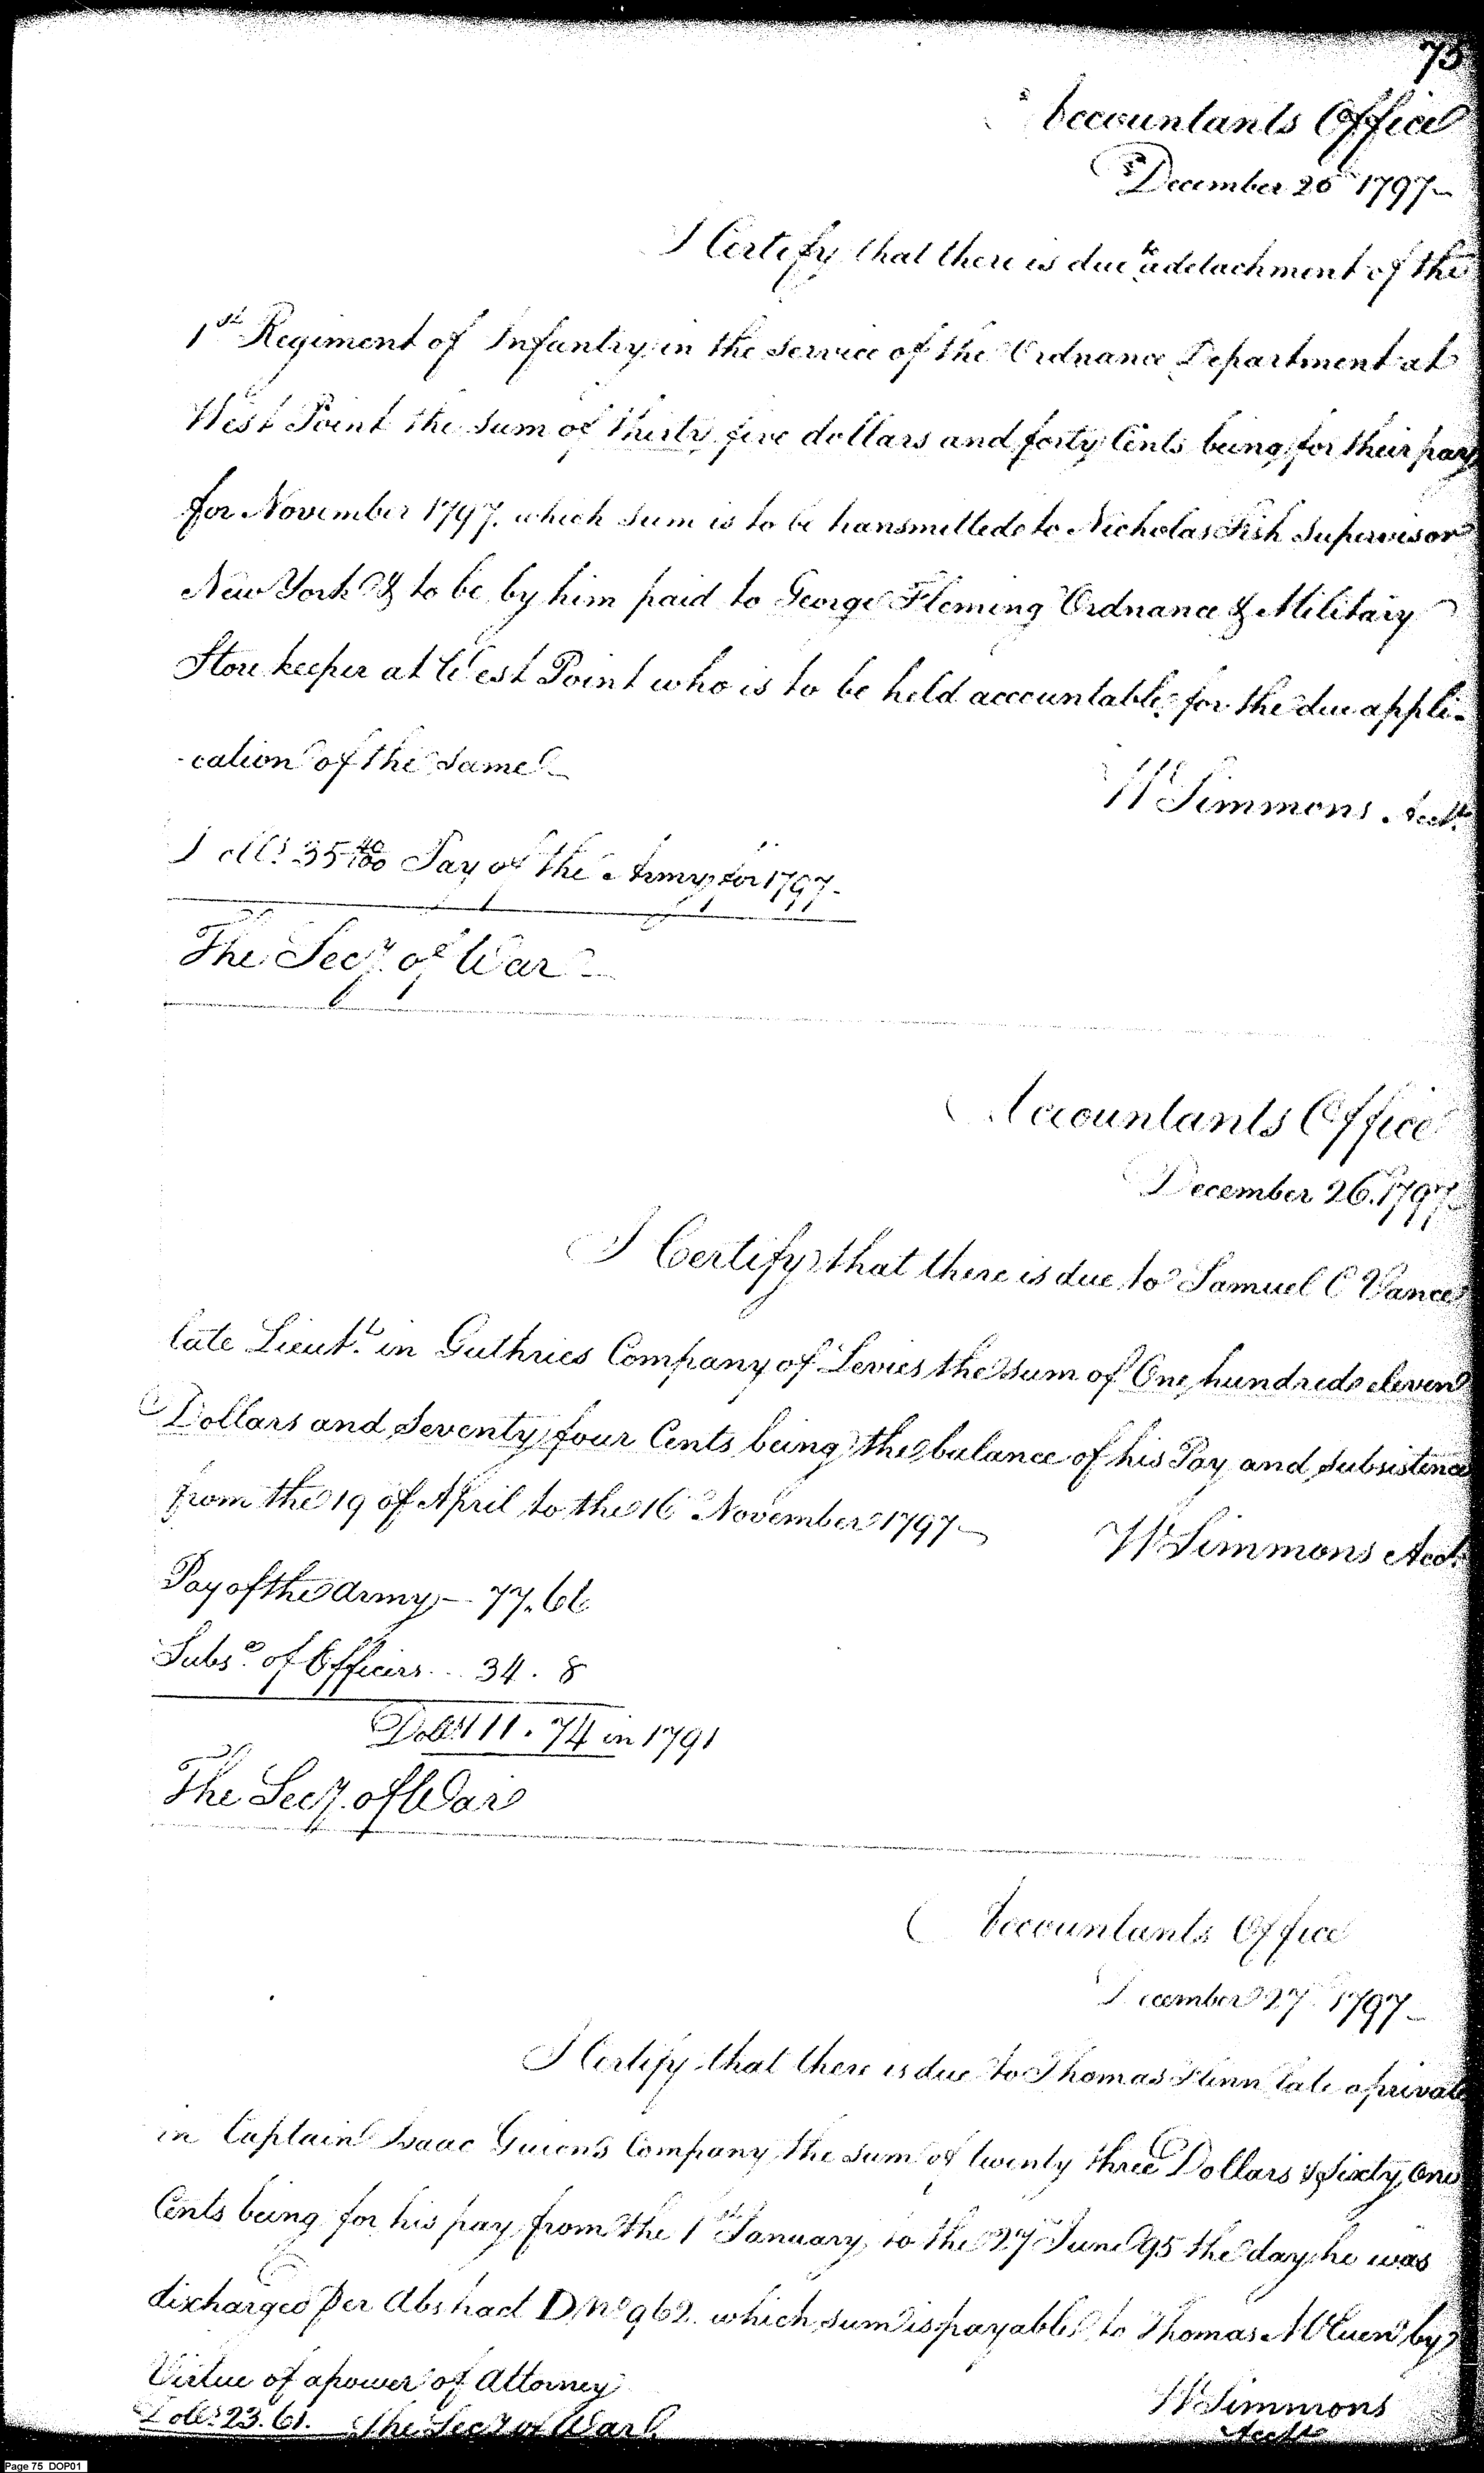 75
Accountants Office
December 26 1797
I Certify that there is due to a detachment of the
1st Regiment of Infantry in the service of the Ordnance Department at
West Point the sum of thirty five dollars and forty Cents being for their pay
for November 1797. which sum is to be transmitted to Nicholas Fish Supervisor
New York & to be by him paid to George Fleming Ordnance & Military
Store keeper at West Point who is to be held accountable for the due appli-
-cation of the same
W Simmons Acct.
Dolls. 35 40/100 Pay of the Army for 1797-
The Secy. of War
Accountants Office
December 26. 1797
I Certify that there is due to Samuel C Vance
late Lieut. in Guthries Company of Levies the sum of One hundred eleven
Dollars and Seventy four Cents being the balance of his Pay and subsistence
from the 19 of April to the 16 November 1797
W Simmons Acct.
Pay of the Army - 77.66
Subse. of Officers .. 34. 8
Dolls 111.74 in 1791
The Secy. of War
Accountants Office
December 27 1797
I Certify that there is due to Thomas Flinn late a private
in Captain Isaac Guions Company the sum of twenty three Dollars & Sixty One
Cents being for his pay from the 1st January to the 27 June 95 the day he was
discharged per Abstract D No 962 which sum is payable to Thomas by
Virtue of a power of Attorney
W Simmons
Acct
Dolls. 23.61. The Secy of War
Page 75 DOP01